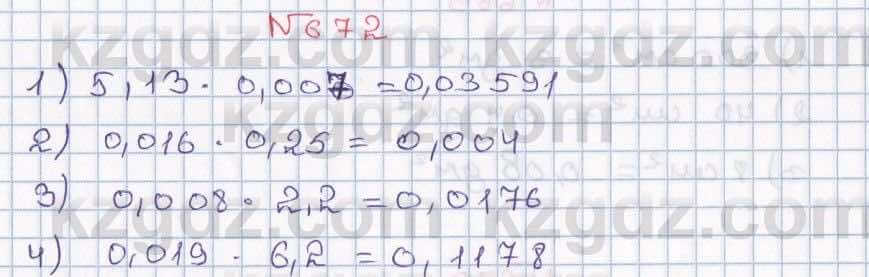 №672
1) 5,13 · 0,007 = 0,03591
2) 0,016 · 0,25 = 0,004
3) 0,008 · 2,2 = 0,0176
4) 0,019 · 6,2 = 0,1178
kzgdz.com kzgdz.com
kzgdz.com
kzgdz.com kzgdz.com
kzgdz.com